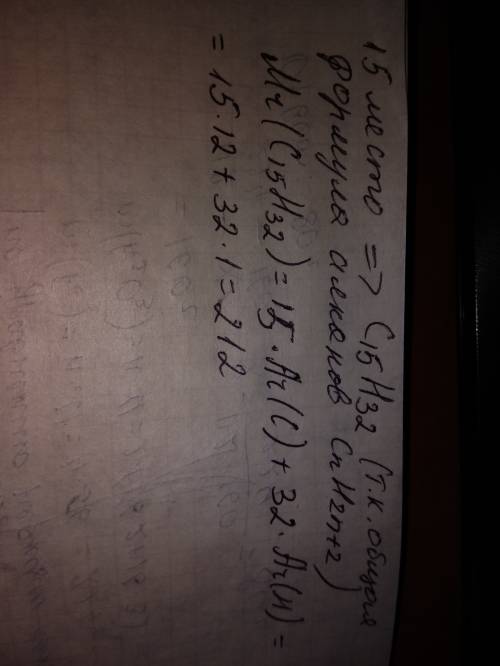 15 место => C15H32 (т.к. общая
формула алканов CnH2n+2)
Mr(C15H32)=15·Ar(C)+32·Ar(H)=
=15·12+32·1=212